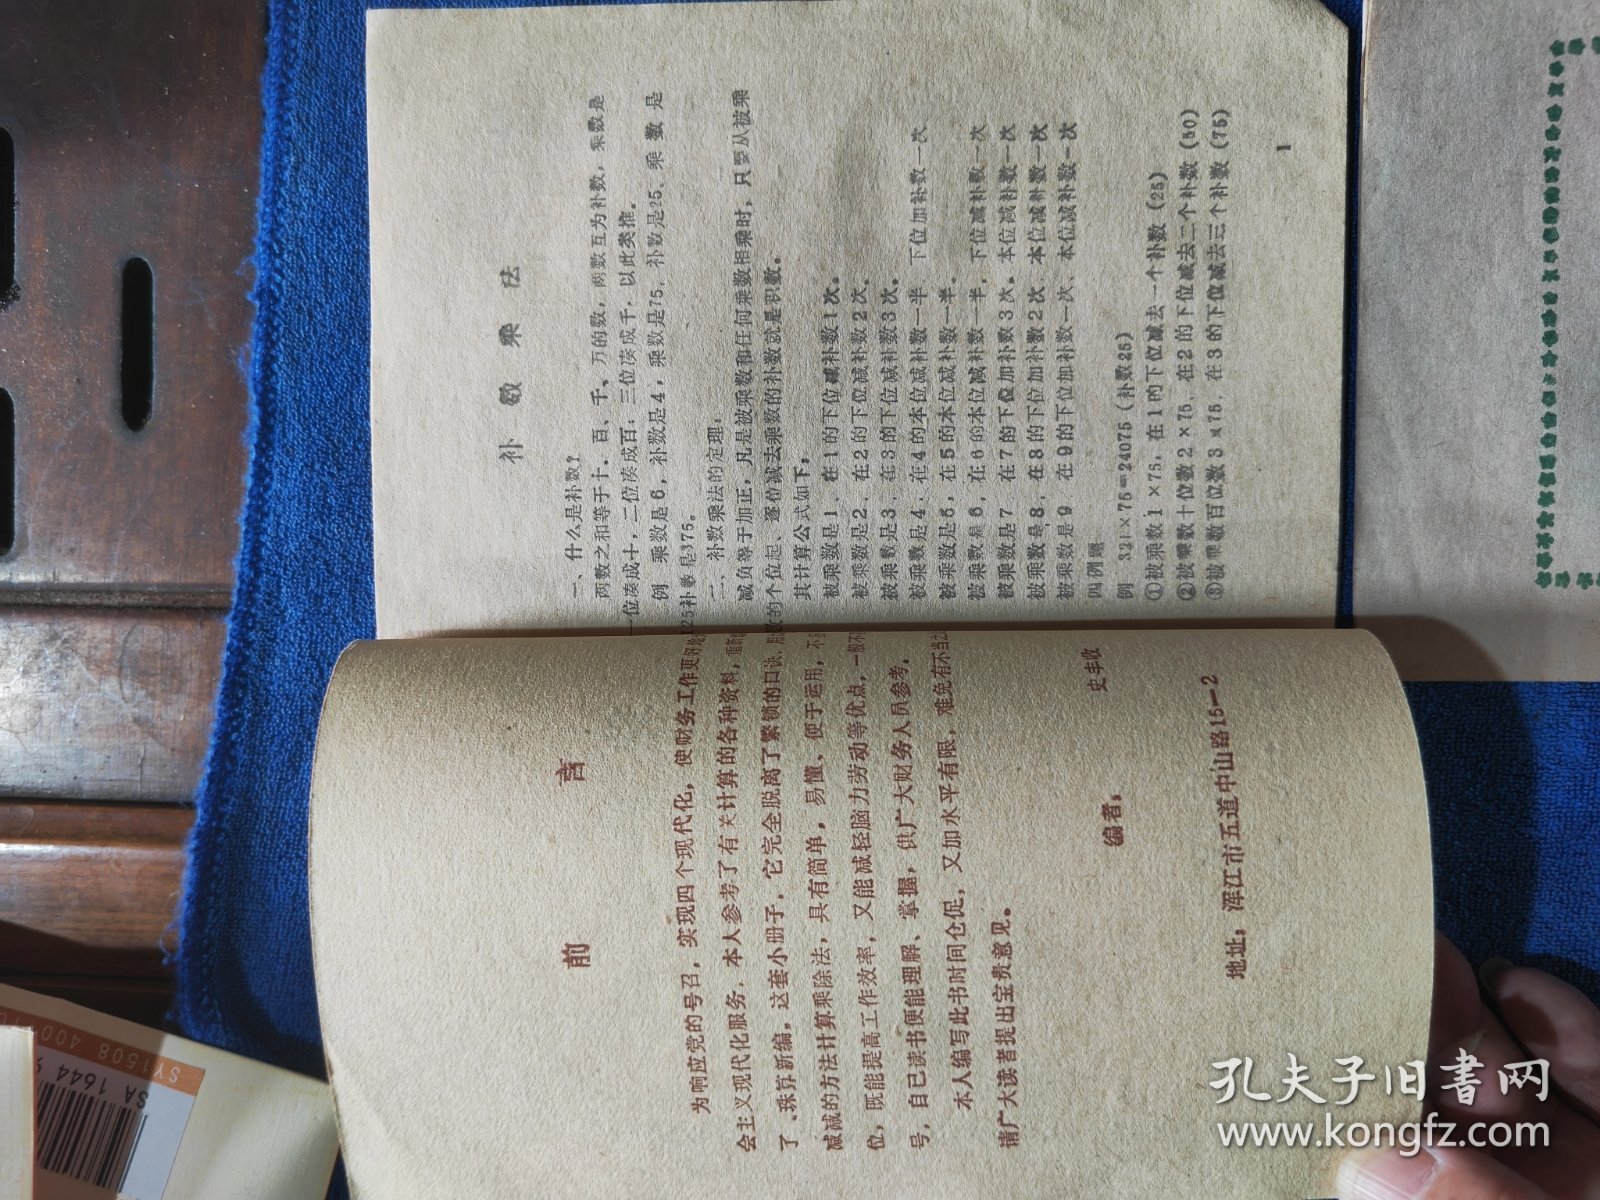 前言
为响应党的号召，实现四个现代化，使财务工作更好
会主义现代化服务，本人参考了有关计算的各种资料，重新
了《珠算新编》，这套小册子，它完全脱离了繁锁的口诀、用
减减的方法计算乘除法，具有简单，易懂、便于运用，不
位，既能提高工作效率，又能减轻脑力劳动等优点，一般不
号，自已读书便能理解、掌握，供广大财务人员参考。
本人编写此书时间仓促，又加水平有限，难免有不当之
请广大读者提出宝贵意见。
编者： 史丰收
地址：浑江市五道中山路15—2
补数乘法
一、什么是补数？
两数之和等于十、百、千、万的数，两数互为补数，乘数是
一位凑成十，二位凑成百；三位凑成千，以此类推。
例 乘数是6，补数是4，乘数是75，补数是25、乘数是
125补数是375。
二、补数乘法的定理：
减负等于加正，凡是被乘数和任何乘数相乘时，只要从被乘
数的个位起、逐位减去乘数的补数就是积数。
其计算公式如下：
被乘数是1、在1的下位减补数1次。
被乘数是2、在2的下位减补数2次。
被乘数是3、在3的下位减补数3次。
被乘数是4，在4的本位减补数一半 下位加补数一次
被乘数是5，在5的本位减补数一半。
被乘数是6，在6的本位减补数一半，下位减补数一次
被乘数是7 在7的下位加补数3次。本位减补数一次
被乘数是8，在8的下位加补数2次 本位减补数一次
被乘数是9 在9的下位加补数一次、本位减补数一次
四例题
例 321×75＝24075（补数25）
①被乘数1×75，在1的下位减去一个补数（25）
②被乘数十位数2×75，在2的下位减去二个补数（50）
③被乘数百位数3×75，在3的下位减去三个补数（75）
1
SY1508 400
SA 1644
孔夫子旧書网
www.kongfz.com